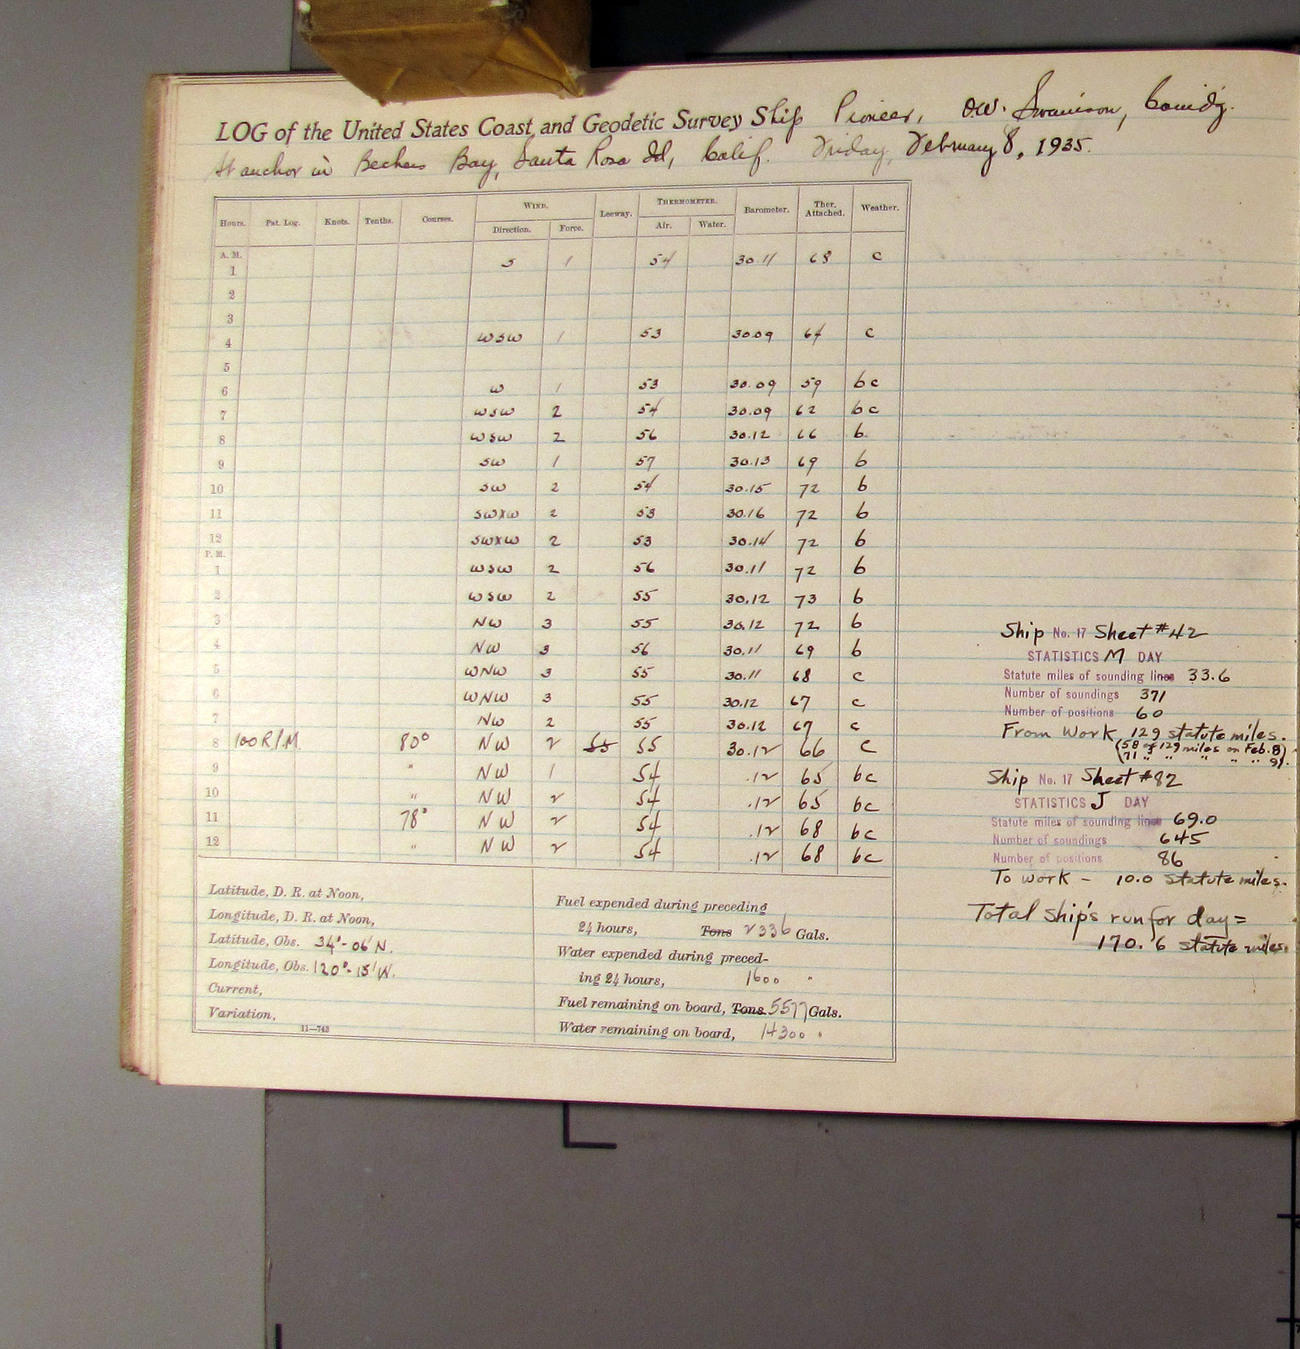 LOG of the United States Coast and Geodetic Survey Ship Pioneer, O.W. Swainson, Comd'g.
At anchor in Bechers Bay, Santa Rosa Id, Calif. Friday, February 8, 1935.
Hours. Pat. Log. Knots. Tenths. Courses. WIND. Leeway. THERMOMETER. Barometer. Ther. Attached. Weather.
Direction. Force. Air. Water.
A. M.
1 S 1 54 30.11 68 c
2
3
4 WSW 1 53 30.09 64 c
5
6 W 1 53 30.09 59 bc
7 WSW 2 54 30.09 62 bc
8 WSW 2 56 30.12 66 b
9 SW 1 57 30.13 69 b
10 SW 2 54 30.15 72 b
11 SWxW 2 53 30.16 72 b
12 SWxW 2 53 30.14 72 b
P. M.
1 WSW 2 56 30.11 72 b
2 WSW 2 55 30.12 73 b
3 NW 3 55 30.12 72 b
4 NW 3 56 30.11 69 b
5 WNW 3 55 30.11 68 c
6 WNW 3 55 30.12 67 c
7 NW 2 55 30.12 67 c
8 100 R.P.M. 80° NW 2 55 55 30.12 66 c
9 " NW 1 54 .12 65 bc
10 " NW 2 54 .12 65 bc
11 78° NW 2 54 .12 68 bc
12 " NW 2 54 .12 68 bc
Latitude, D. R. at Noon,
Longitude, D. R. at Noon,
Latitude, Obs. 34°-06' N.
Longitude, Obs. 120°-15' W.
Current,
Variation,
11—743
Fuel expended during preceding
24 hours, Tons 2336 Gals.
Water expended during preced-
ing 24 hours, 1600 "
Fuel remaining on board, Tons 5577 Gals.
Water remaining on board, 14300 "
Ship No. 17 Sheet #42
STATISTICS M DAY
Statute miles of sounding lines 33.6
Number of soundings 371
Number of positions 60
From Work 129 statute miles.
(58 of 129 miles on Feb. 8)
(71 " " " " " 9).
Ship No. 17 Sheet #82
STATISTICS J DAY
Statute miles of sounding lines 69.0
Number of soundings 645
Number of positions 86
To work - 10.0 statute miles.
Total ship's run for day =
170.6 statute miles.